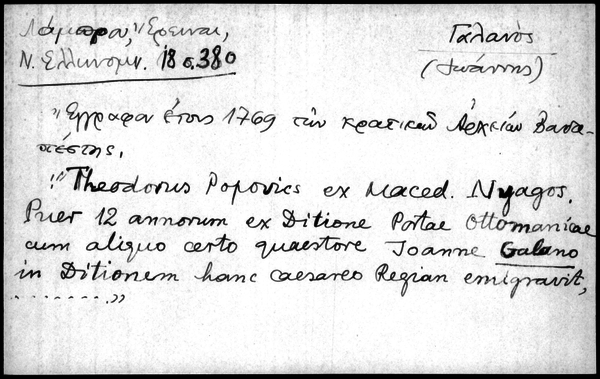 Λάμπρου, Ἔρευναι,
Ν. Ἑλληνομν. 18 σ. 380
Γαλανὸς
(Ἰωάννης)
"Ἔγγραφα ἔτους 1769 τῶν κρατικῶν Ἀρχείων Βουδα-
πέστης.
"Theodorus Popovics ex Maced. Nyagos.
Puer 12 annorum ex Ditione Portae Ottomanicae
cum aliquo certo quaestore Joanne Galano
in Ditionem hanc caesareo Regian emigravit,
........."